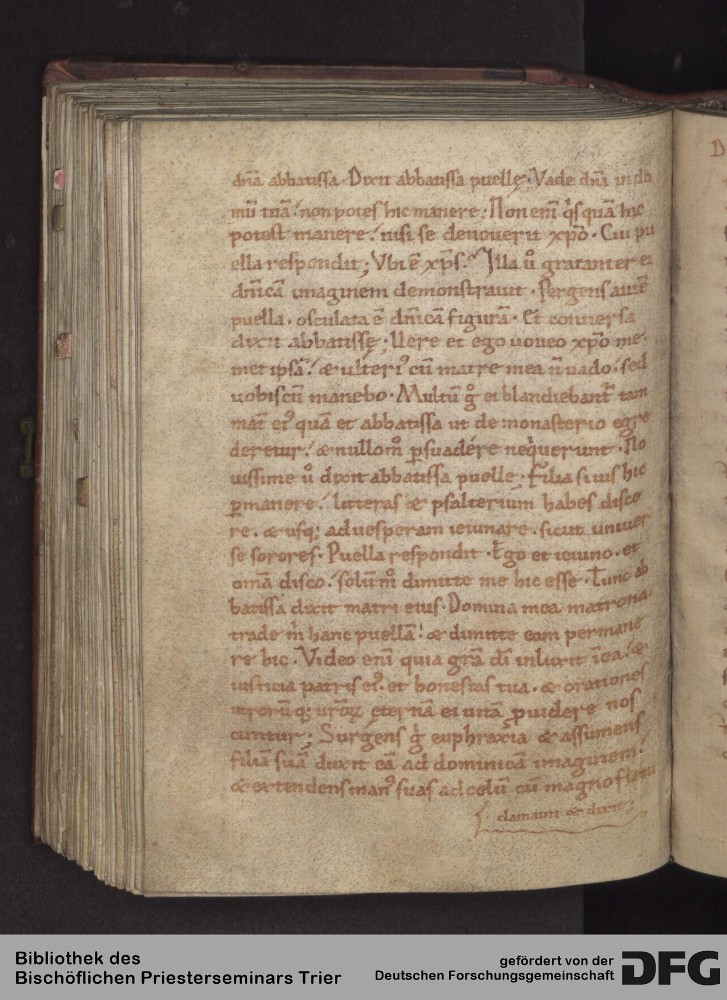 dn̄a abbatissa · Dixit abbatissa puellę · Vade dn̄a in do
mū tuā! non potes hic manere; Non enī q̇squā hic
potest manere! nisi se devouerit xp̄o · Cui pu
ella respondit; Vbi ē xp̄s? Illa ů gratanter ei
dn̄icā imaginem demonstrauit · Pergens autē
puella · osculata ē dn̄icā figurā · Et conuersa
dixit abbatissę; Uere et ego uoueo xp̄o me
met ipsā! & ulteri᾽ cū matre mea n̄ uado! sed
uobiscū manebo · Multū g̊ ei blandiebant᷑ tam
mat̄ ei᾽ quā et abbatissa ut de monasterio egre
deretur! & nullom̊ ꝑsuadére neq̇uerunt · No
uissime ů dixit abbatissa puelle; Filia si uis hic
ꝑmanere! litteras & psalterium habes disce
re · & usq; ad uesperam ieiunare · sicut uniuer
se sorores · Puella respondit · Ego et ieiuno · et
omā disco! solūm̊ dimitte me hic esse · Tunc ab
batissa dixit matri eius · Domina mea matrona
trade m̄ hanc puellā! & dimitte eam permane
re hic · Video enī quia gr̄a dī inluxit ī ea! &
iusticia patris ei᾽ · et honestas tua · & orationes
utrorūq; ur̄oꝝ ęternā ei uitā ꝓuidere nos
cuntur; Surgens g̊ euphraxia & assumens
filiā suā duxit eā ad dominicā imaginem!
& extendens man᾽ suas ad celū cū magno fletu
clamauit & dixit;
D
Bibliothek des
Bischöflichen Priesterseminars Trier
gefördert von der
Deutschen Forschungsgemeinschaft
DFG